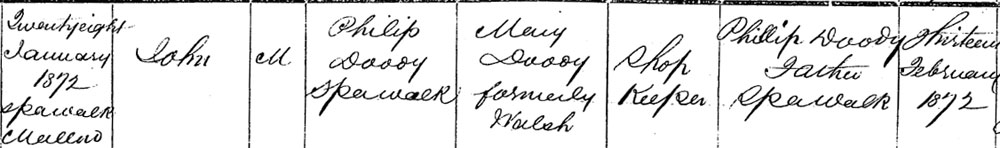 Twentyeight
January
1872
Spawalk
Mallow
John
M
Philip
Doody
Spawalk
Mary
Doody
formerly
Walsh
Shop
Keeper
Phillip Doody
Father
Spawalk
Thirteen
February
1872